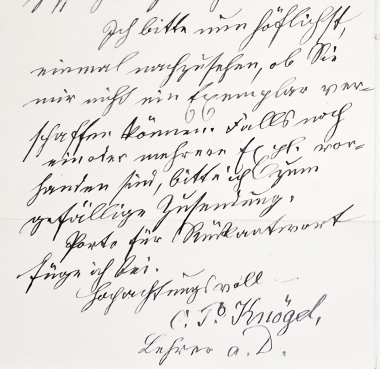 Ich bitte nun höflichst,
einmal nachzusehen, ob Sie
mir nicht ein Exemplar ver-
schaffen können. Falls noch
ein oder mehrere Expl. vor-
handen sind, bitte ich zum
gefällige Zusendung.
Porto für Rückantwort
füge ich bei.
Hochachtungsvoll
Knögel,
Lehrer a. D.